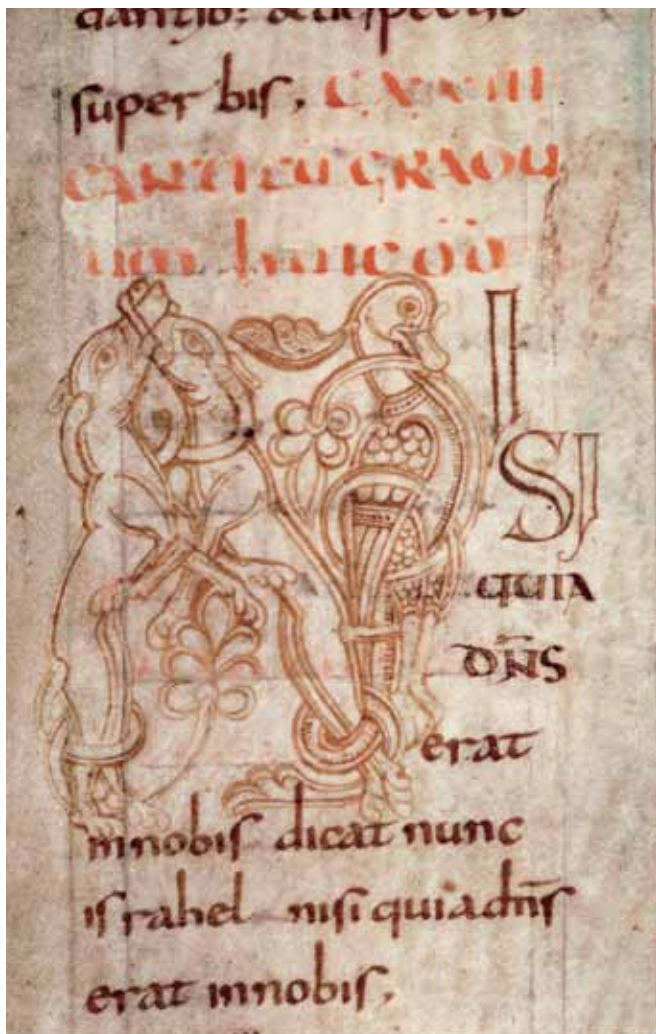 despectio
super bis. CXXIII
CANTICŪ GRADU
um
NI
SI
QUIA
DN̄S
erat
innobis dicat nunc
israhel nisi quia dn̄s
erat innobis.